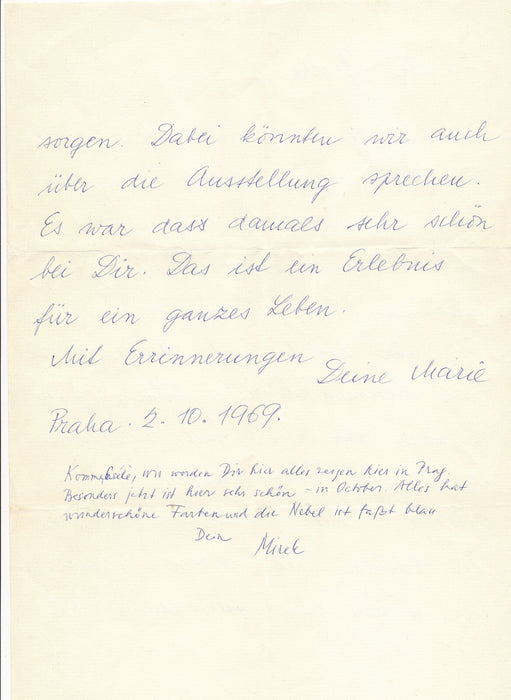 sorgen. Dabei könnten wir auch
über die Ausstellung sprechen.
Es war dass damals sehr schön
bei Dir. Das ist ein Erlebnis
für ein ganzes Leben.
Mit Errinnerungen
Deine Marie
Praha. 2. 10. 1969.
wir werden Dir hier alles zeigen hier in Prag.
Besonders jetzt ist hier sehr schön – in October. Alles hat
wunderschöne Farben und die Nebel ist faßt blau
Dein
Mirek